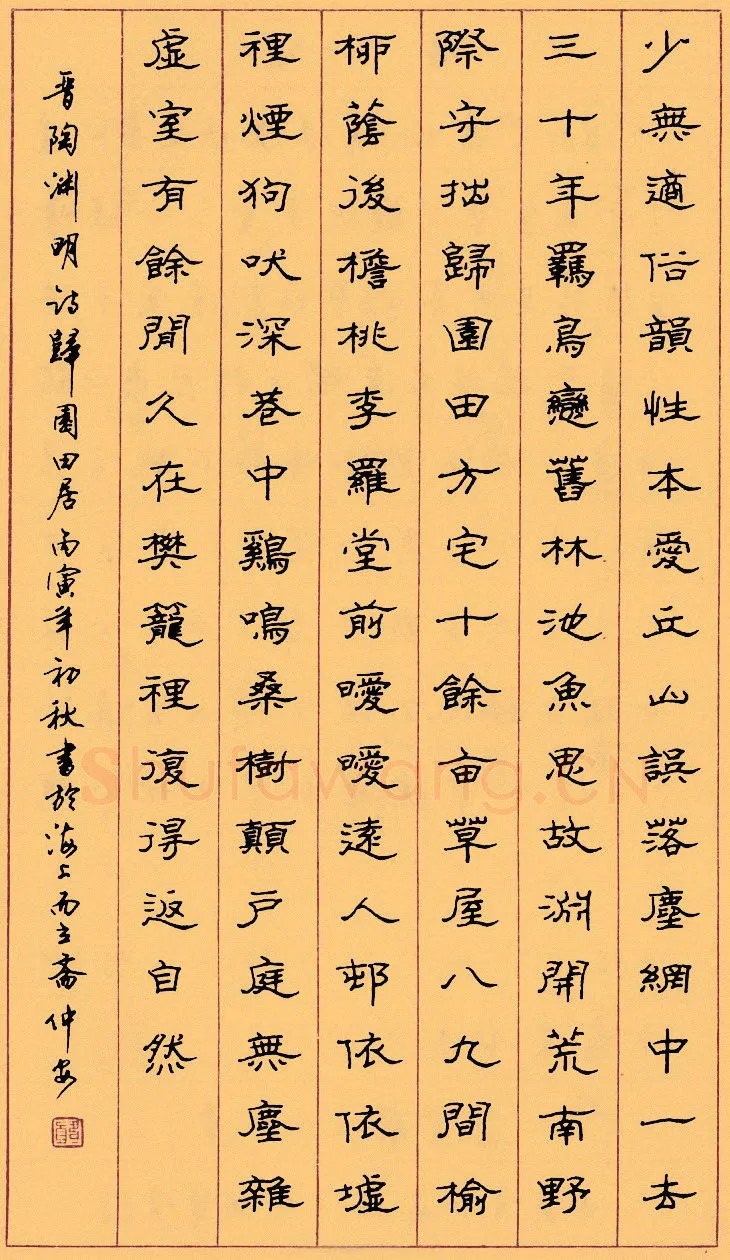 少無適俗韻性本愛丘山誤落塵網中一去
三十年羈鳥戀舊林池魚思故淵開荒南野
際守拙歸園田方宅十餘亩草屋八九間榆
柳蔭後檐桃李羅堂前曖曖遠人邨依依墟
裡煙狗吠深巷中鷄鳴桑樹顛戶庭無塵雜
虛室有餘閒久在樊籠裡復得返自然
晋陶渊明诗歸園田居丙寅年初秋書於海上而立齋仲安
Shufawang.CN